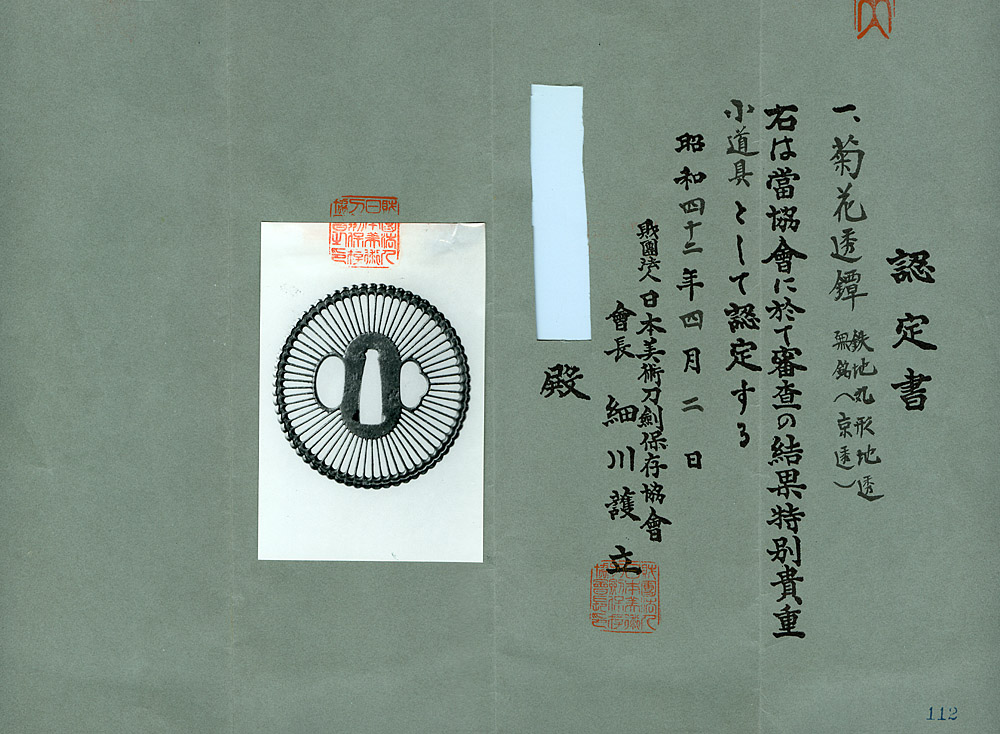 認定書
一、菊花透鐔
鉄地丸形地透
無銘(京透)
右は當協會に於て審査の結果特別貴重
小道具として認定する
昭和四十二年四月二日
財團法人日本美術刀劍保存協會
會長 細川護立
殿
112